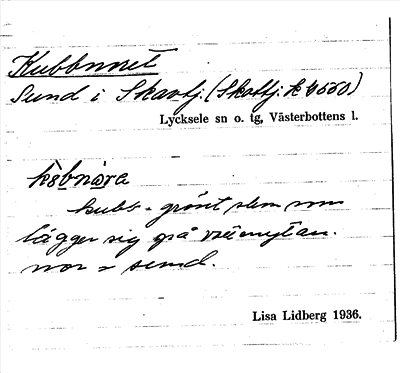 Kubbnoret
Sund i Skavtj. (Skattj: k 4550)
Lycksele sn o. tg, Västerbottens l.
kòbnòra
kubb = grönt slem som
lägger sig på vattenytan.
nor = sund.
Lisa Lidberg 1936.